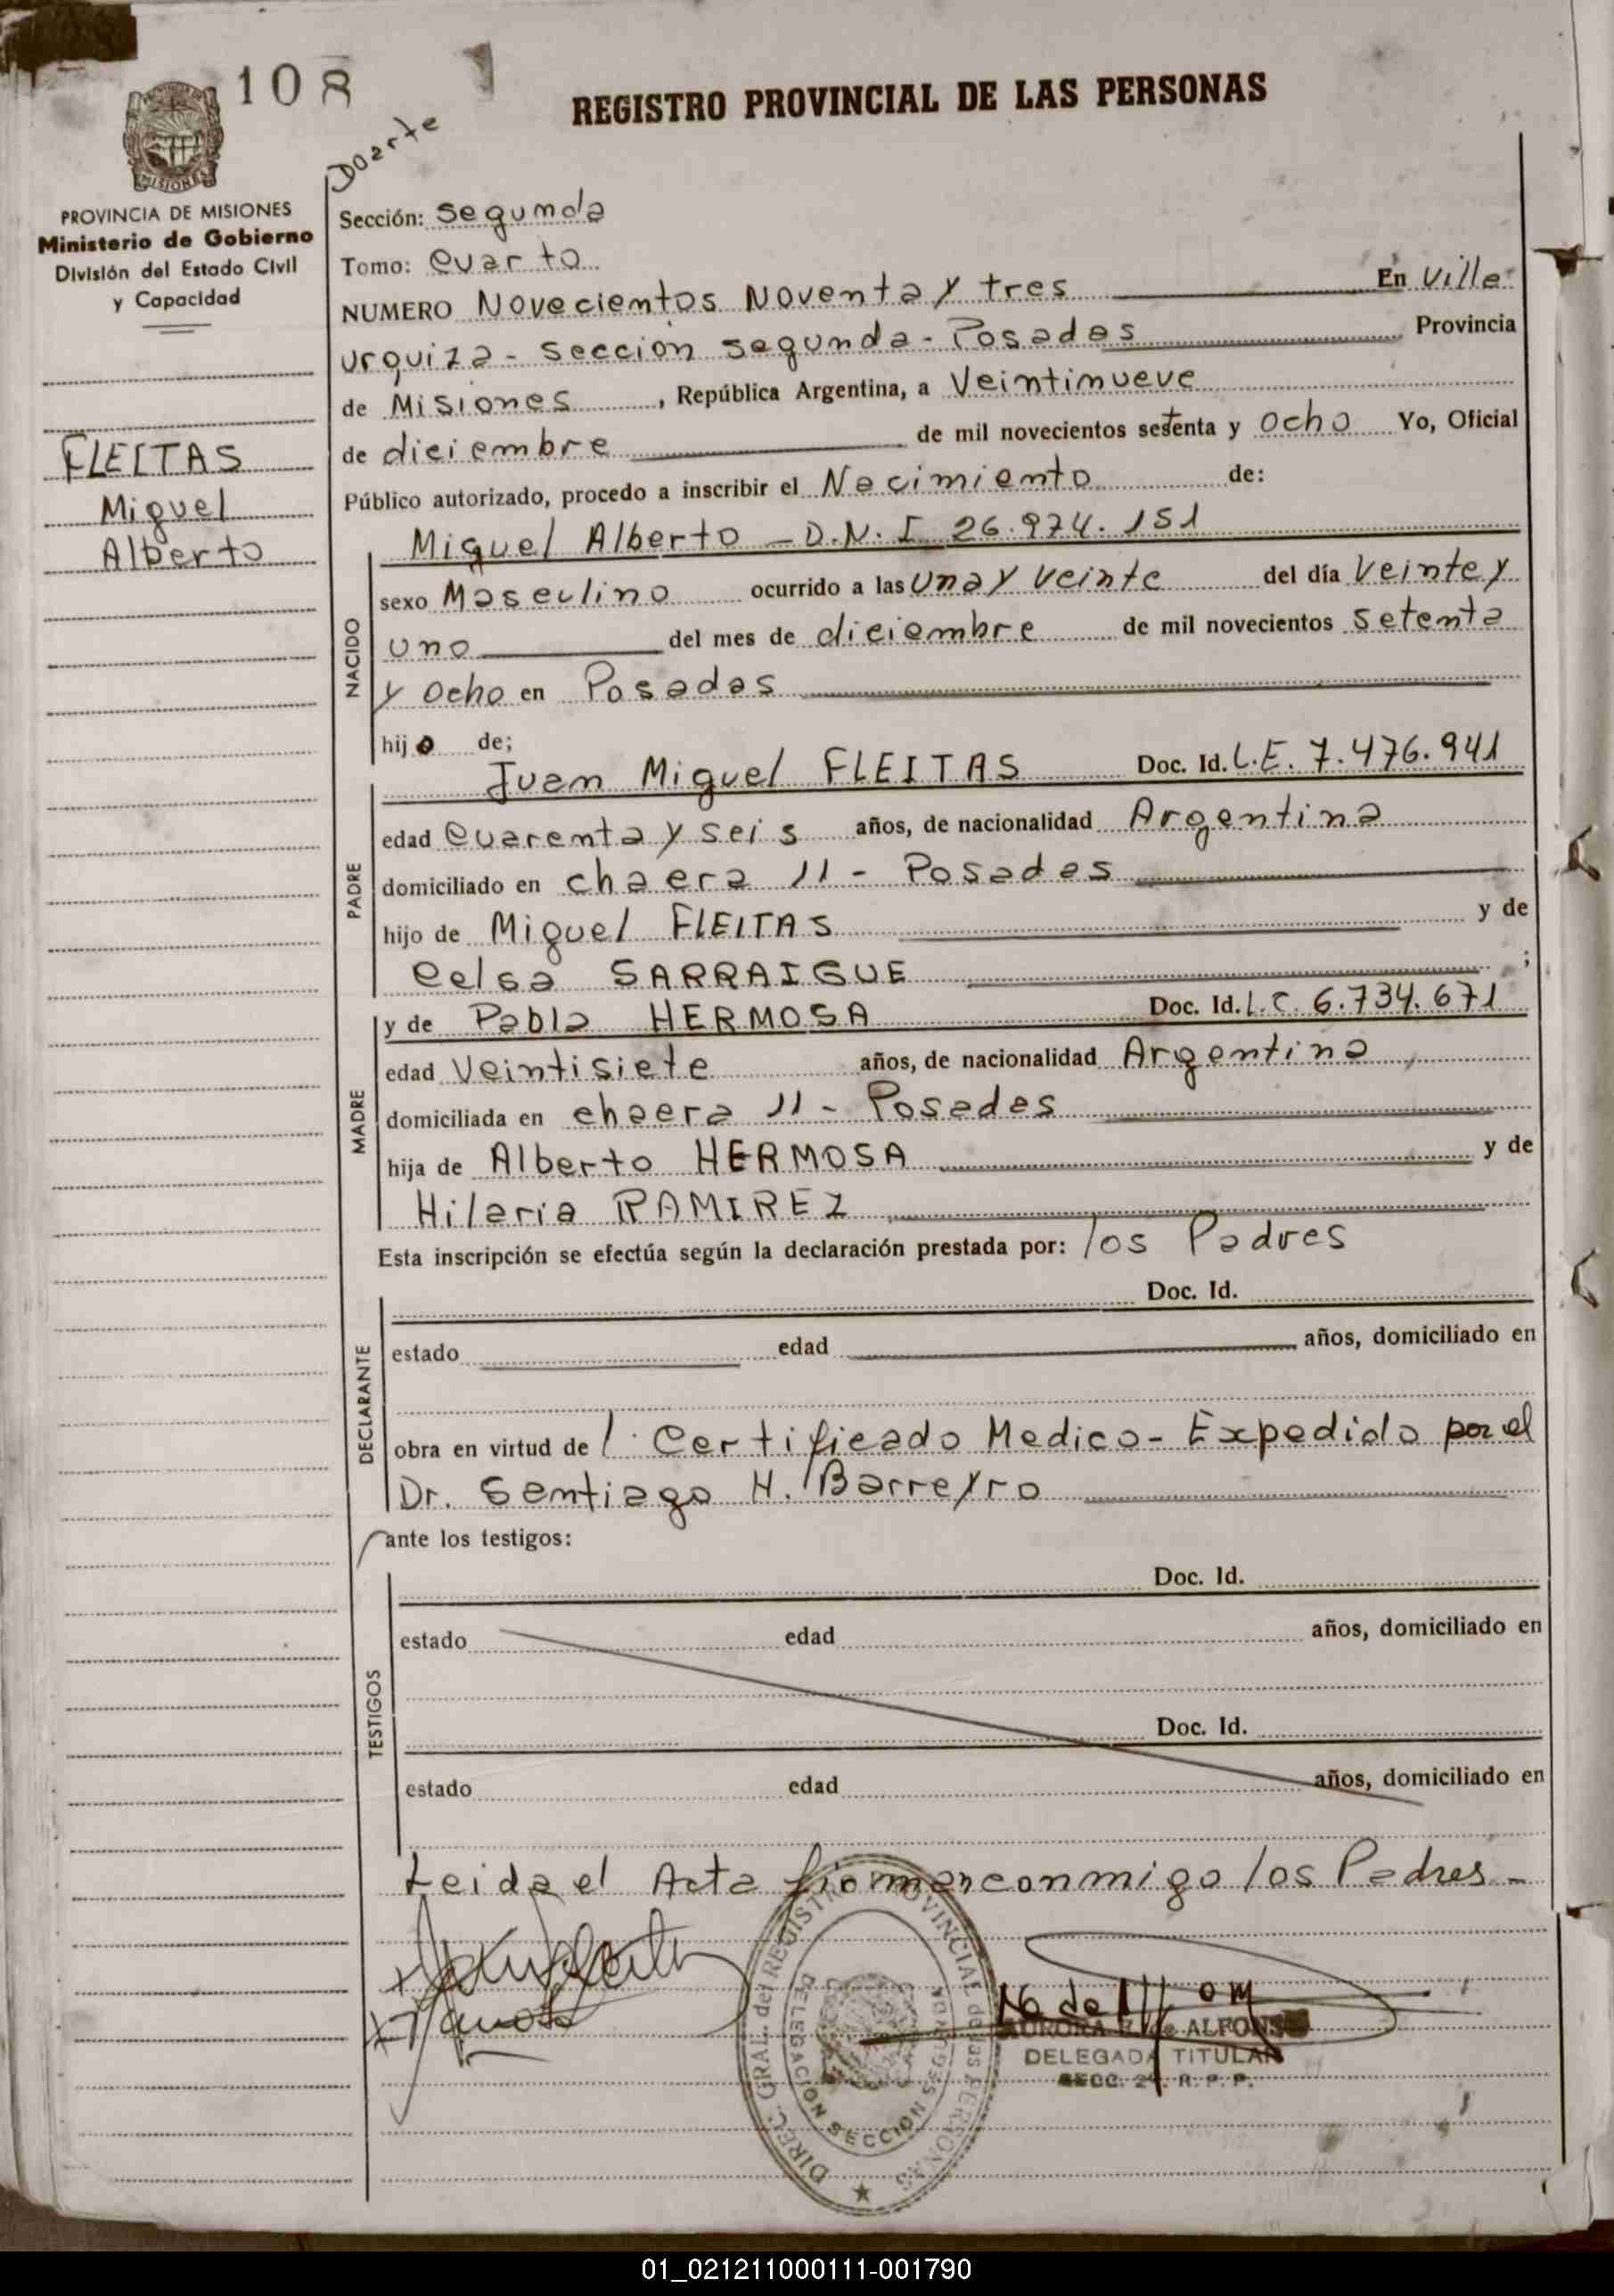 108
REGISTRO PROVINCIAL DE LAS PERSONAS
Doarte
MISIONES
PROVINCIA DE MISIONES
Ministerio de Gobierno
División del Estado Civil
y Capacidad
FLEITAS
Miguel
Alberto
Sección: Segunda
Tomo: Cuarto
NUMERO Novecientos Noventa y tres En Villa
Urquiza - Sección Segunda - Posadas Provincia
de Misiones, República Argentina, a Veintinueve
de diciembre de mil novecientos setenta y Ocho Yo, Oficial
Público autorizado, procedo a inscribir el Nacimiento de:
NACIDO
Miguel Alberto - D.N.I 26.974.151
sexo Masculino ocurrido a las una y veinte del día Veinte y
uno del mes de diciembre de mil novecientos Setenta
y Ocho en Posadas
hijo de;
PADRE
Juan Miguel FLEITAS Doc. Id. L.E. 7.476.941
edad Cuarenta y seis años, de nacionalidad Argentina
domiciliado en chacra 11 - Posadas
hijo de Miguel FLEITAS y de
Celsa SARRAIGUE ;
MADRE
y de Pabla HERMOSA Doc. Id. L.C. 6.734.671
edad Veintisiete años, de nacionalidad Argentina
domiciliada en chacra 11 - Posadas
hija de Alberto HERMOSA y de
Hilaria RAMIREZ
Esta inscripción se efectúa según la declaración prestada por: los Padres
DECLARANTE
Doc. Id.
estado edad años, domiciliado en
obra en virtud de 1. Certificado Medico - Expedido por el
Dr. Santiago H. Barreyro
ante los testigos:
TESTIGOS
Doc. Id.
estado edad años, domiciliado en
Doc. Id.
estado edad años, domiciliado en
Leida el Acta firman conmigo los Padres -
DIREC. GRAL. del REGISTRO PROVINCIAL de las PERSONAS
DELEGACION SECCION SEGUNDA
AURORA de ALFONSO
DELEGADA TITULAR
SECC. 2ª. R. P. P.
01_021211000111-001790